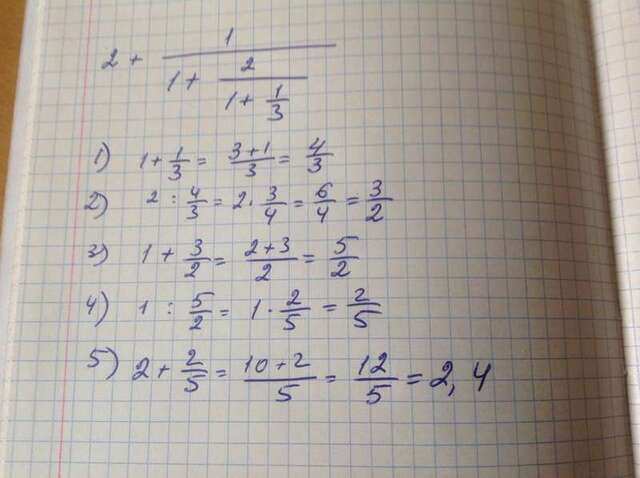 2 + 1/(1 + 2/(1 + 1/3))
1) 1 + 1/3 = (3+1)/3 = 4/3
2) 2 : 4/3 = 2 · 3/4 = 6/4 = 3/2
3) 1 + 3/2 = (2+3)/2 = 5/2
4) 1 : 5/2 = 1 · 2/5 = 2/5
5) 2 + 2/5 = (10+2)/5 = 12/5 = 2,4